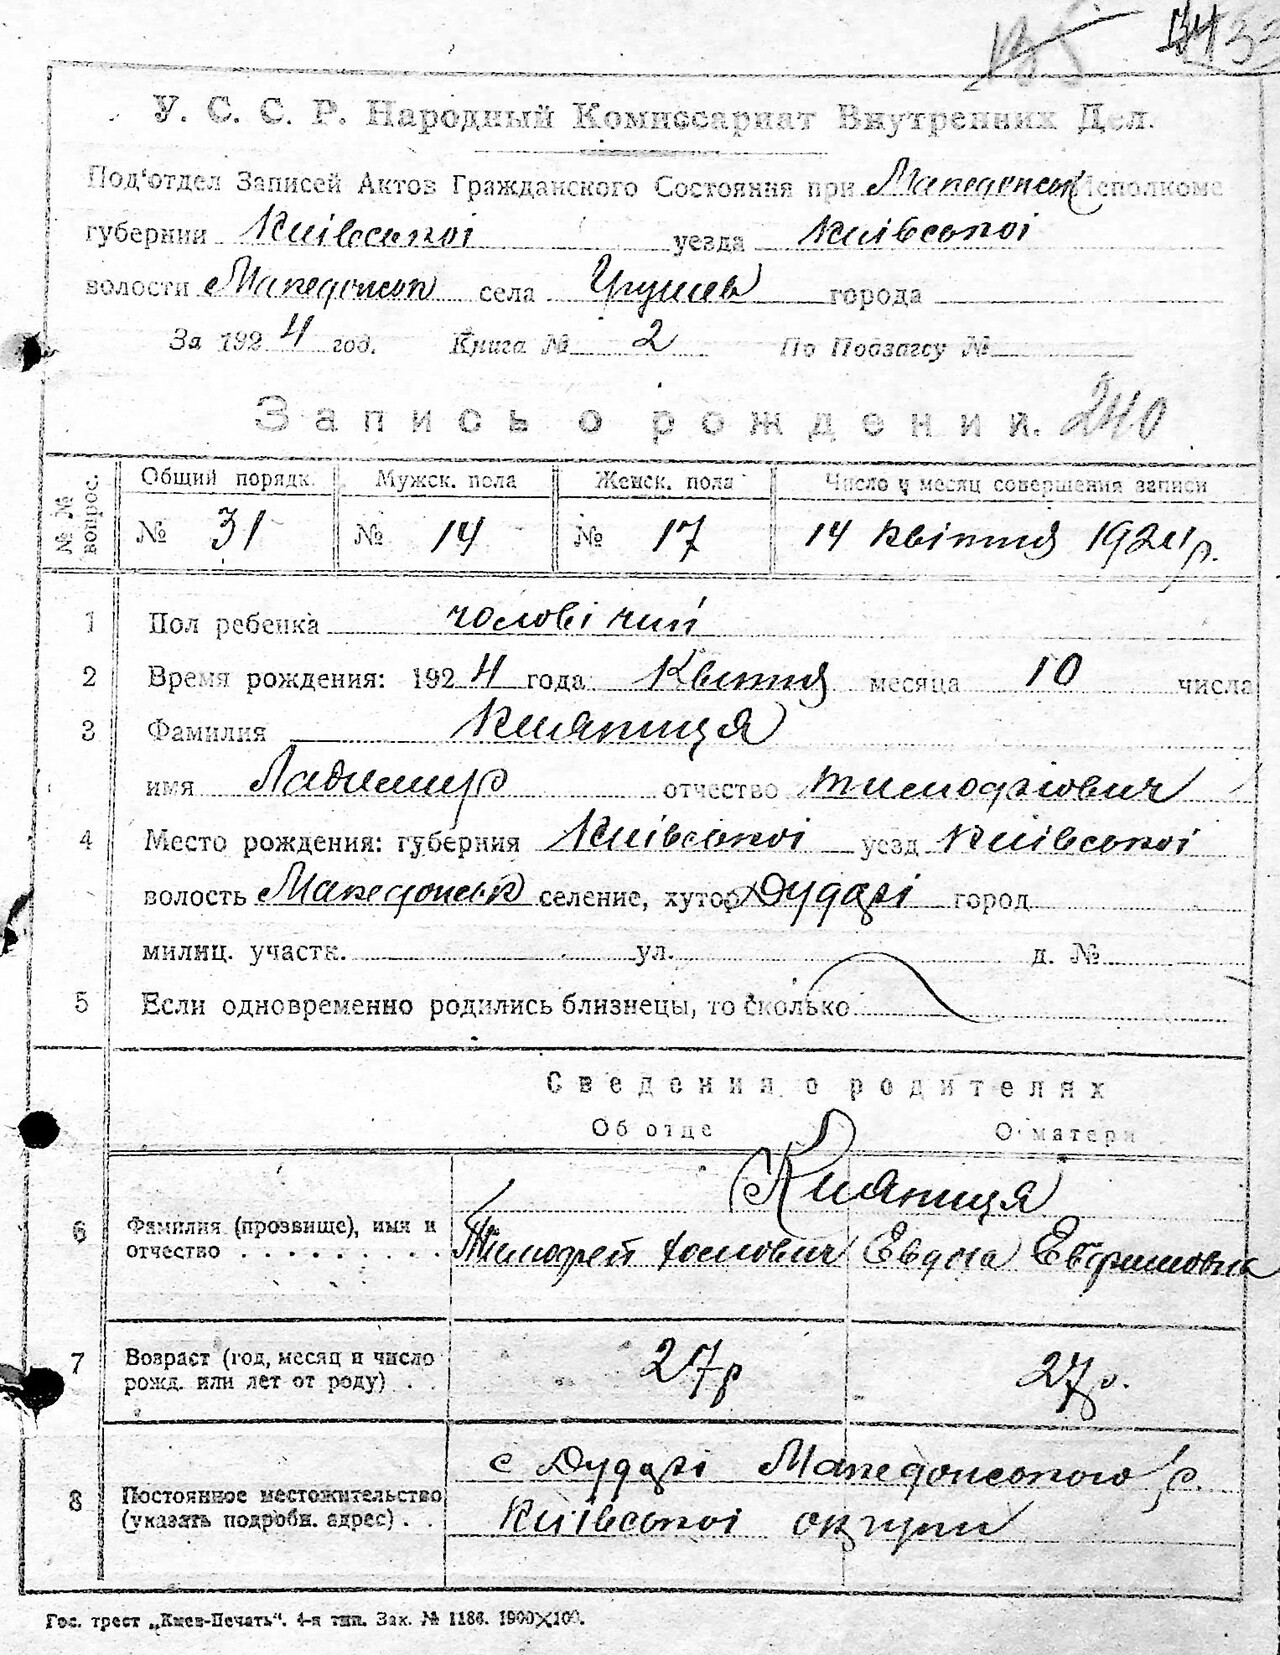 У. С. С. Р. Народный Комиссариат Внутренних Дел.
Под'отдел Записей Актов Гражданского Состояния при Македонськ Исполкоме
губернии Київської уезда Київської
волости Македонськ села Грушев города
За 1924 год. Книга № 2 По Подзагсу №
Запись о рождении. 240
№ № вопрос. Общий порядк. Мужск. пола Женск. пола Число и месяц совершения записи
№ 31 № 14 № 17 14 квітня 1924 р.
1 Пол ребенка чоловічий
2 Время рождения: 1924 года Квітня месяца 10 числа
3 Фамилия Княпиця
имя Ладимир отчество Тимофіович
4 Место рождения: губерния Київської уезд Київської
волость Македонськ селение, хутор Дударі город
милиц. участк. ул. д. №
5 Если одновременно родились близнецы, то сколько
Сведения о родителях
Об отце О матери
6 Фамилия (прозвище), имя и
отчество
Тимофей Евдоча Евфимовна
7 Возраст (год, месяц и число
рожд. или лет от роду) 27 р 27 р.
8 Постоянное местожительство
(указать подробн. адрес)
с Дударі Македонського р.
Київської округи
Гос. трест „Киев-Печать“. 4-я тип. Зак. № 1186. 1900×100.